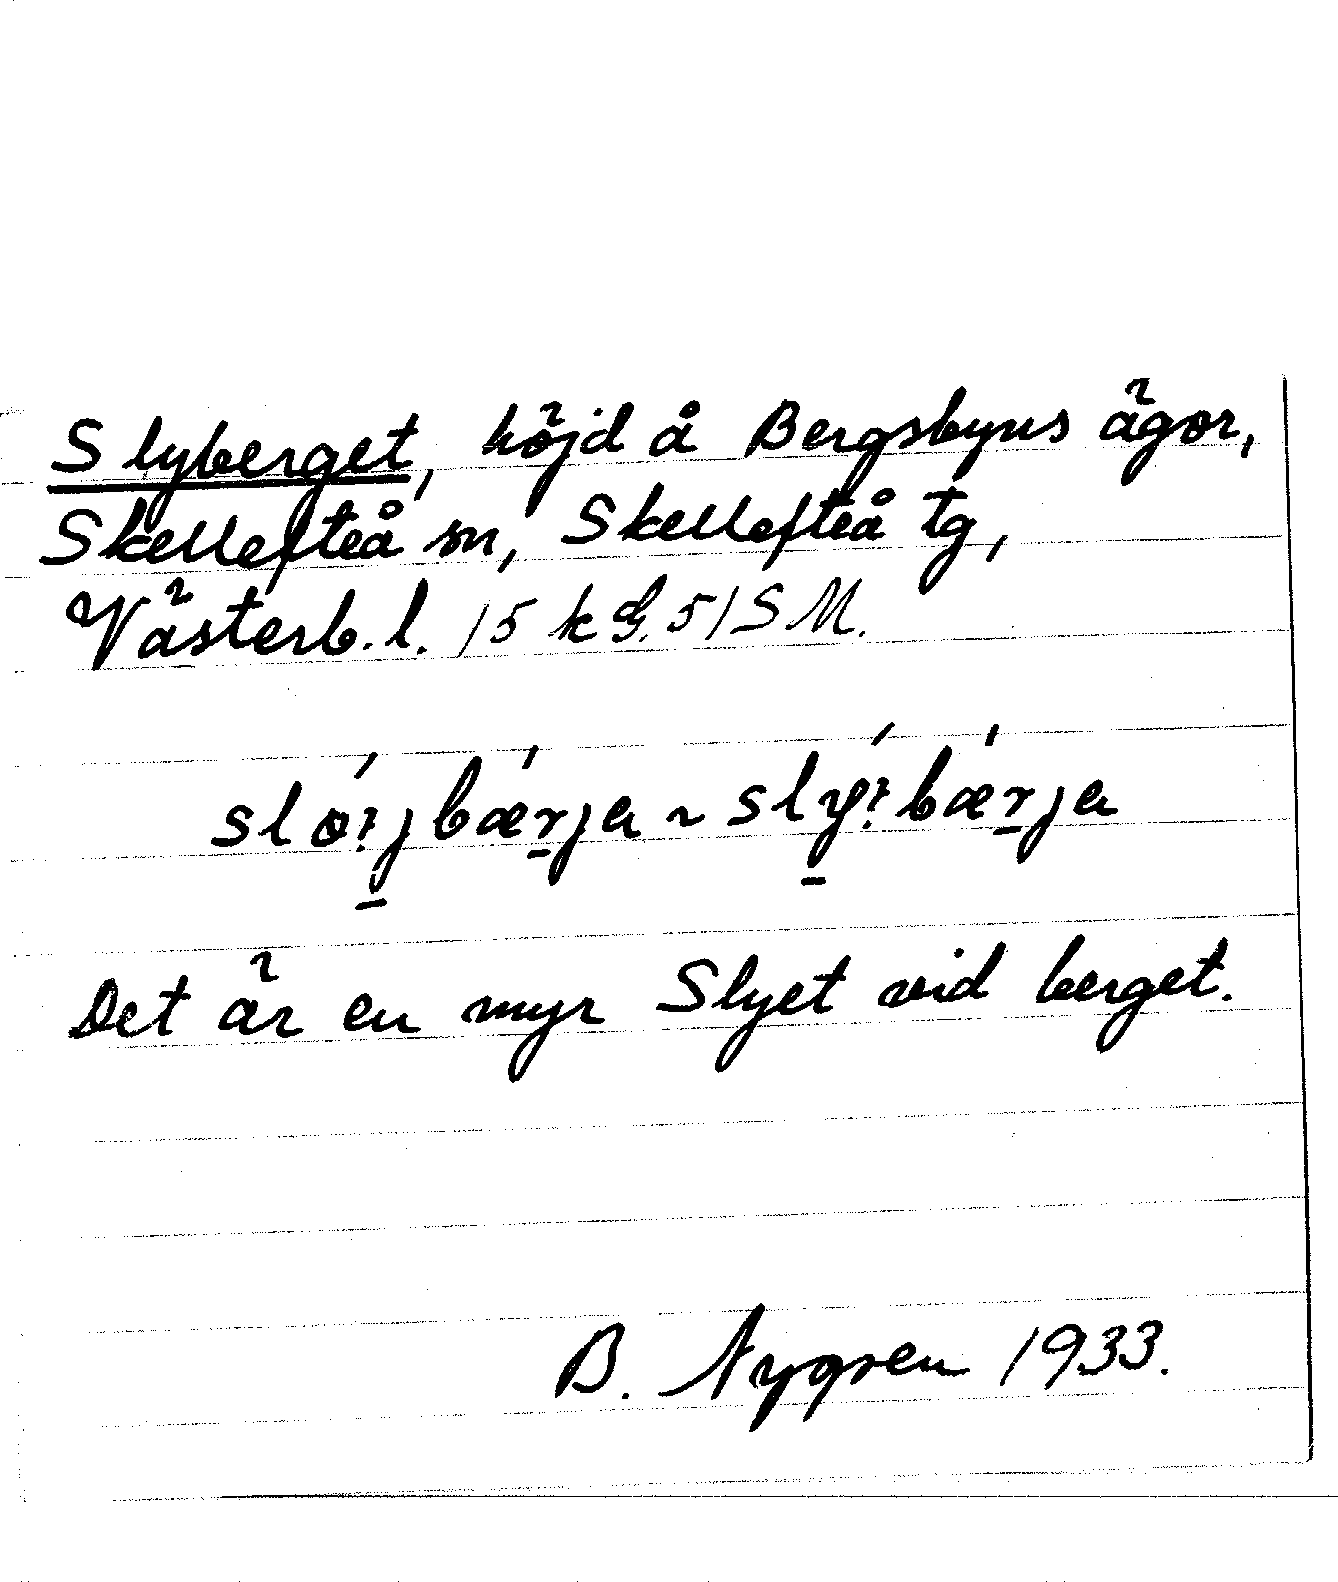 Slyberget, höjd å Bergsbyns ägor,
Skellefteå sn, Skellefteå tg,
Västerb. l. 15 kG. 51SM.
slø̀jbærja ~ slỳbærja
Det är en myr Slyet vid berget.
B. Nygren 1933.